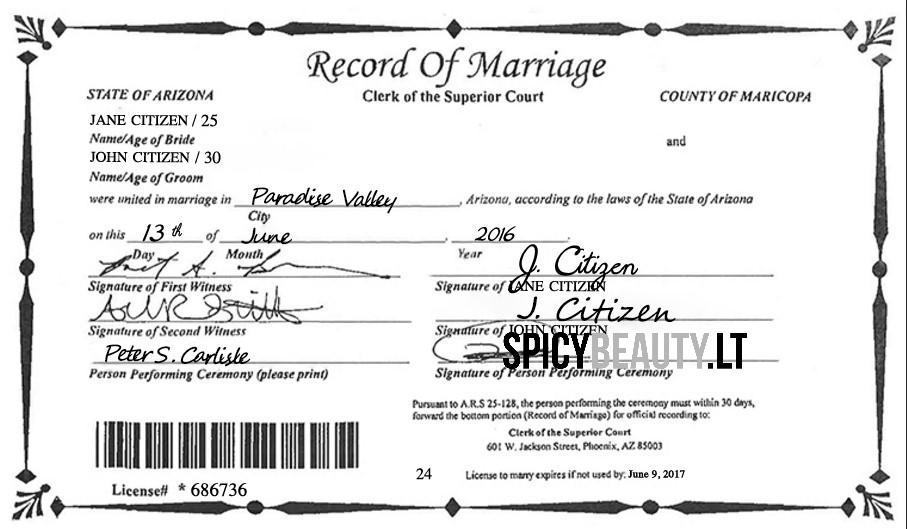 Record Of Marriage
Clerk of the Superior Court
STATE OF ARIZONA COUNTY OF MARICOPA
JANE CITIZEN / 25
Name/Age of Bride and
JOHN CITIZEN / 30
Name/Age of Groom
were united in marriage in Paradise Valley, Arizona, according to the laws of the State of Arizona
City
on this 13th of June, 2016.
Day Month Year
J. Citizen
Signature of First Witness Signature of JANE CITIZEN
J. Citizen
Signature of Second Witness Signature of JOHN CITIZEN
Peter S. Carlisle SPICYBEAUTY.LT
Person Performing Ceremony (please print) Signature of Person Performing Ceremony
Pursuant to A.R.S 25-128, the person performing the ceremony must within 30 days,
forward the bottom portion (Record of Marriage) for official recording to:
Clerk of the Superior Court
601 W. Jackson Street, Phoenix, AZ 85003
24 License to marry expires if not used by: June 9, 2017
License# * 686736